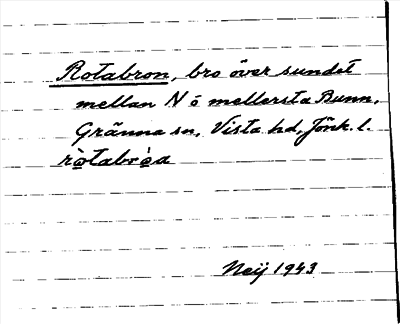 Rotabron, bro över sundet
mellan N o mellersta Bunn,
Gränna sn, Vista hd, Jönk. l.
Neij 1943